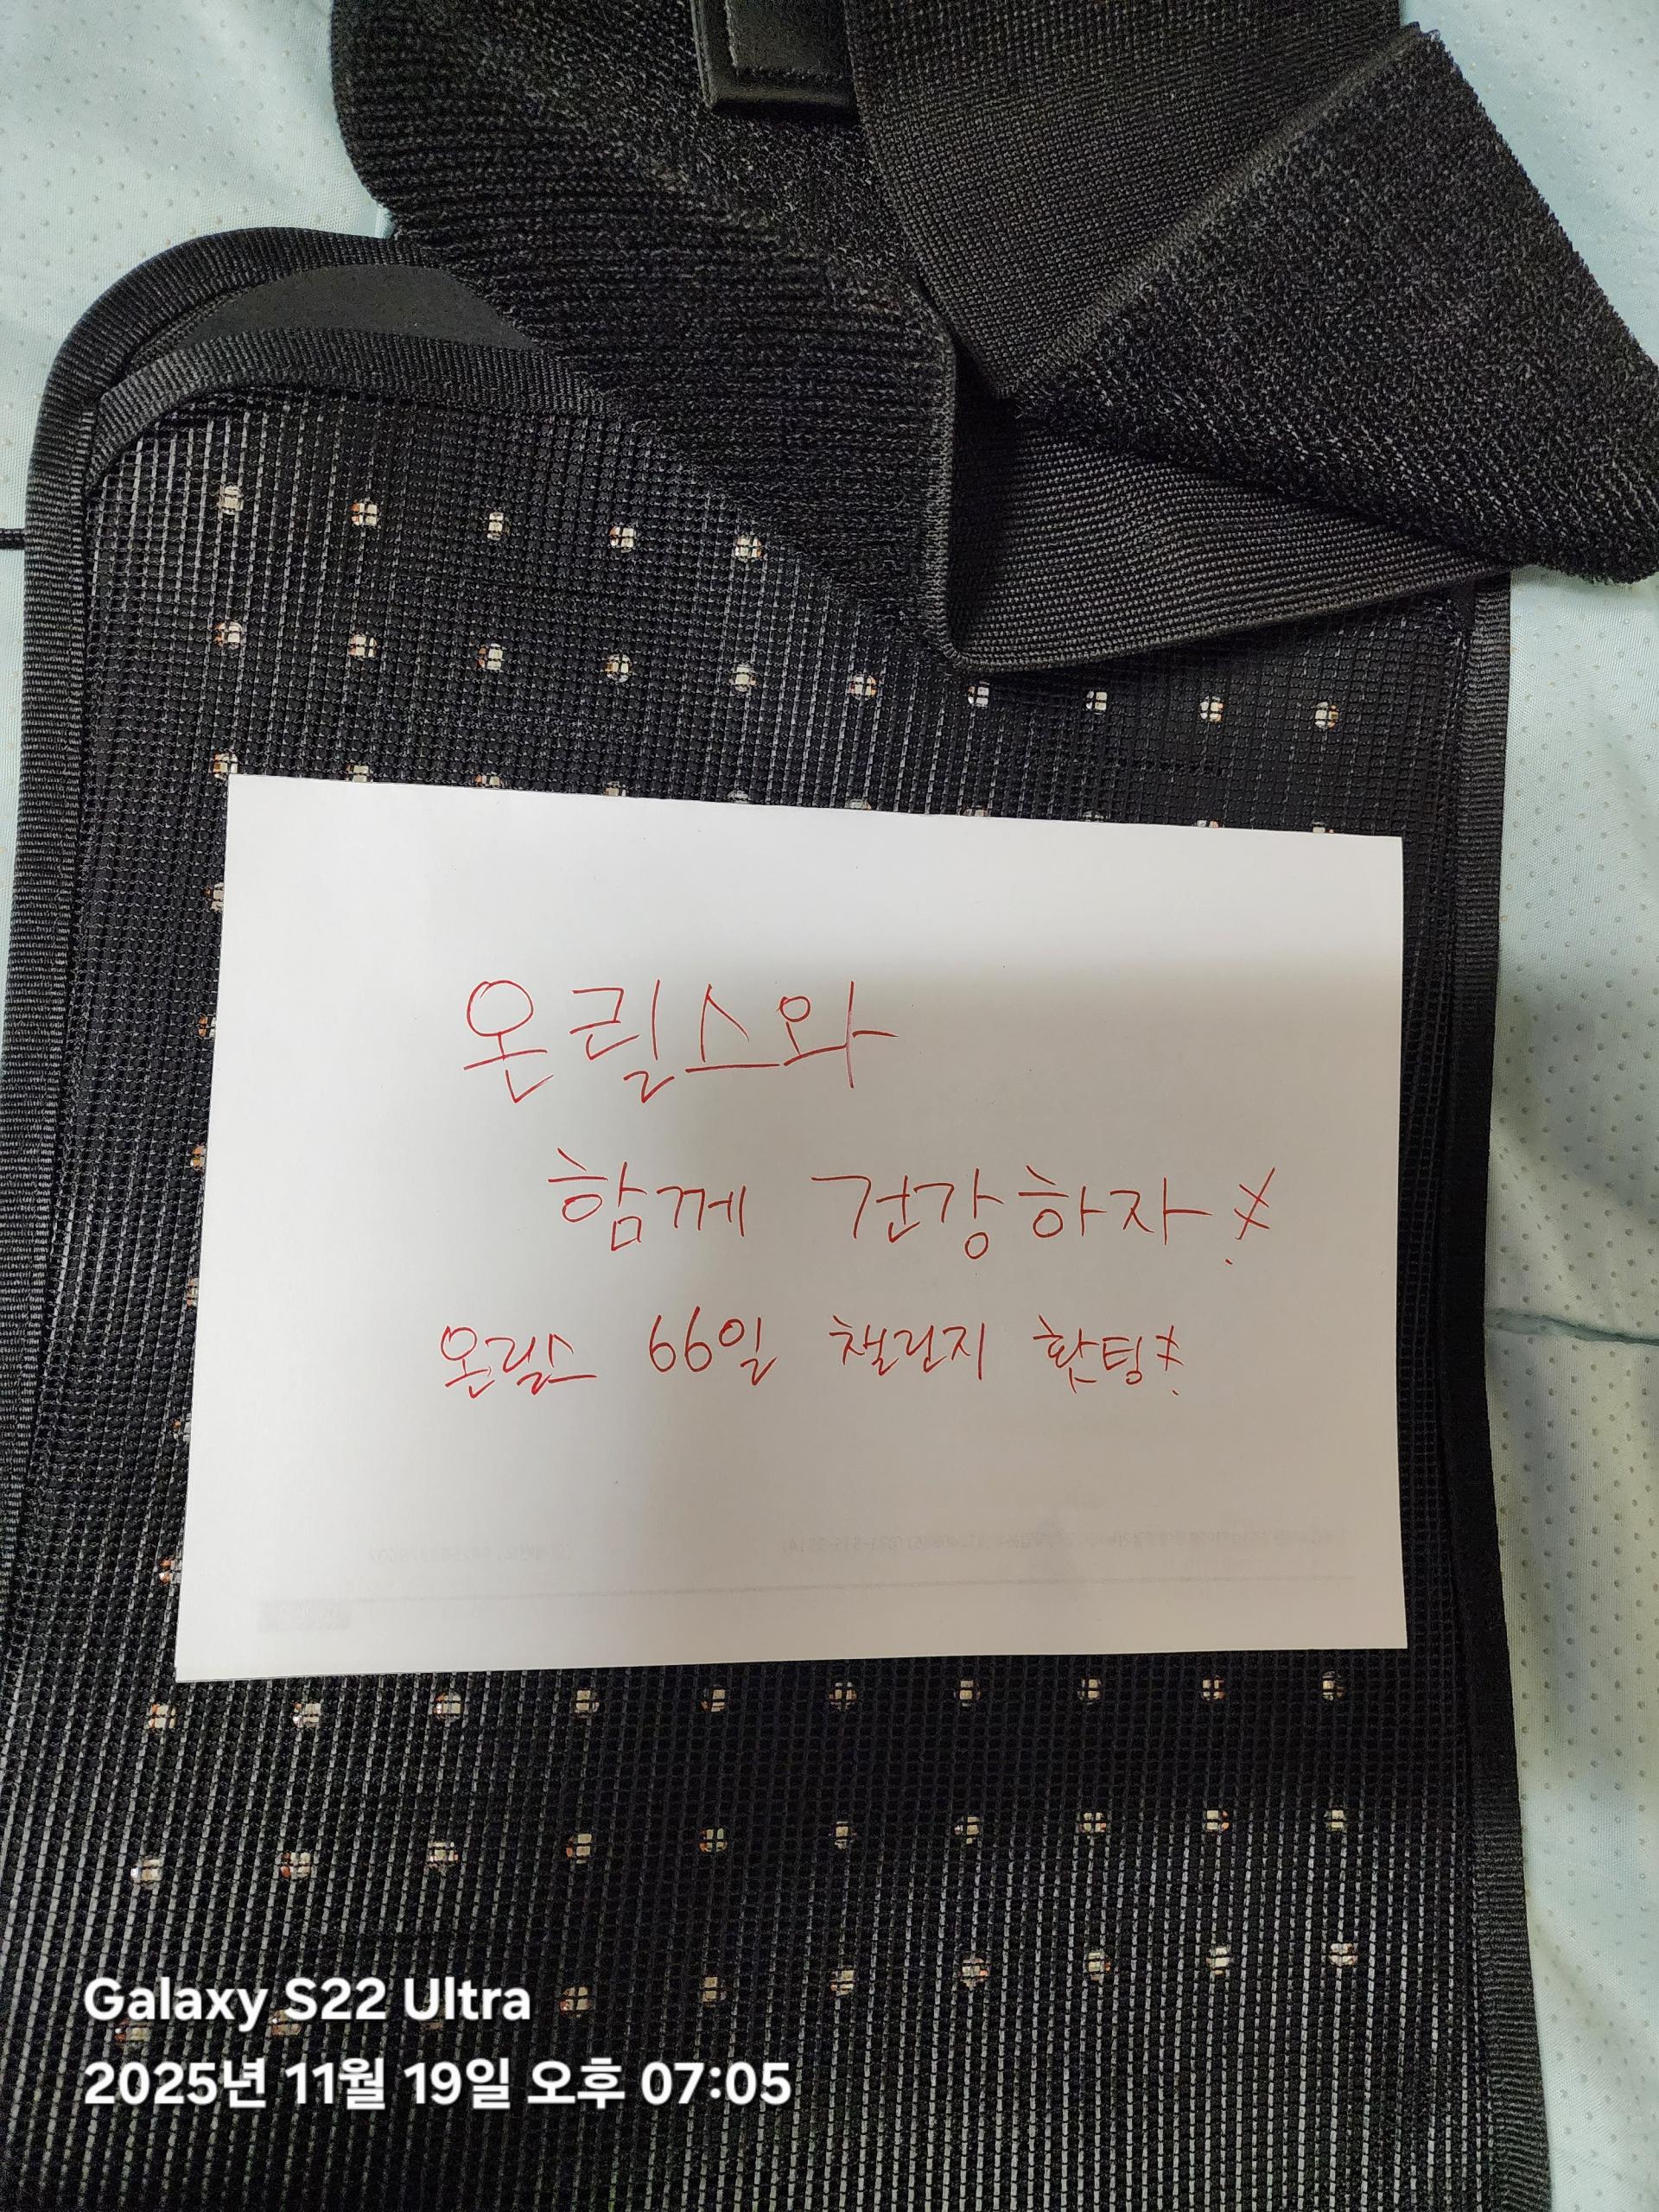 온릴스와
함께 건강하자!
온릴스 66일 챌린지 홧팅!
Galaxy S22 Ultra
2025년 11월 19일 오후 07:05